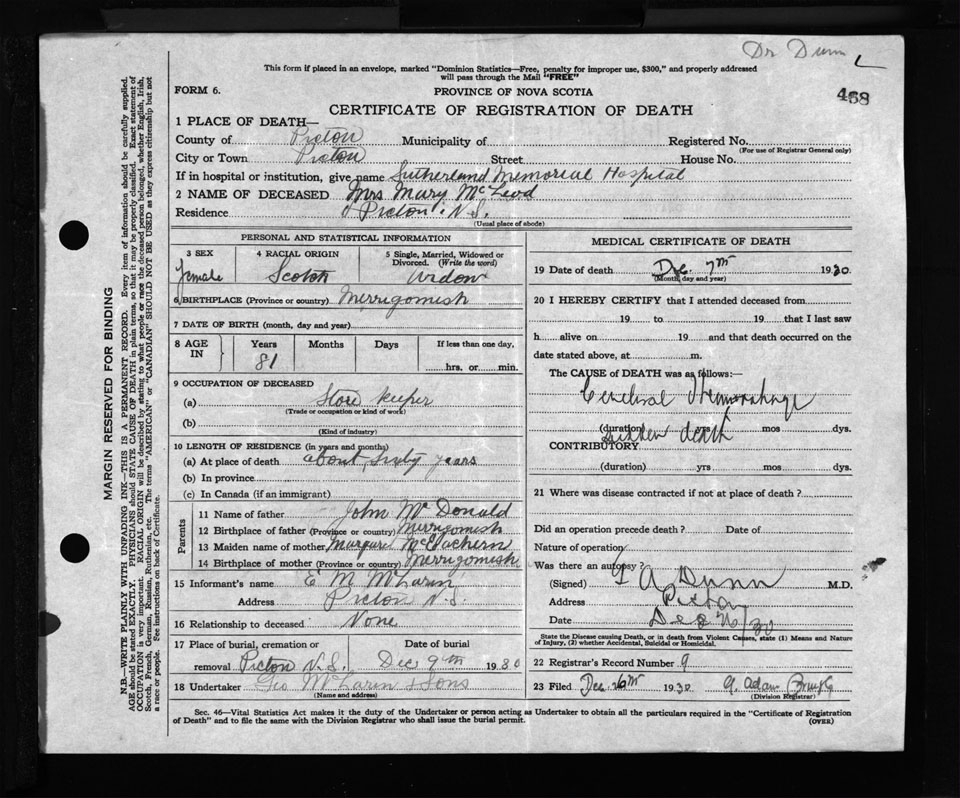 Dr Dunn
This form if placed in an envelope, marked "Dominion Statistics—Free, penalty for improper use, $300," and properly addressed
will pass through the Mail "FREE"
FORM 6.
PROVINCE OF NOVA SCOTIA
468
CERTIFICATE OF REGISTRATION OF DEATH
1 PLACE OF DEATH—
County of Pictou Municipality of Registered No.
(For use of Registrar General only)
City or Town Pictou Street House No.
If in hospital or institution, give name Sutherland Memorial Hospital
2 NAME OF DECEASED Mrs Mary McLeod
Residence Pictou N.S.
(Usual place of abode)
PERSONAL AND STATISTICAL INFORMATION
3 SEX 4 RACIAL ORIGIN 5 Single, Married, Widowed or
Divorced. (Write the word)
female Scotch Widow
6 BIRTHPLACE (Province or country) Merrigomish
7 DATE OF BIRTH (month, day and year)
8 AGE IN Years Months Days If less than one day,
81 hrs. or min.
9 OCCUPATION OF DECEASED
(a) Store keeper
(Trade or occupation or kind of work)
(b)
(Kind of industry)
10 LENGTH OF RESIDENCE (in years and months)
(a) At place of death about sixty years
(b) In province
(c) In Canada (if an immigrant)
Parents
11 Name of father John McDonald
12 Birthplace of father (Province or country) Merrigomish
13 Maiden name of mother McEachern
14 Birthplace of mother (Province or country) Merrigomish
15 Informant's name E M McLaren
Address Pictou N.S.
16 Relationship to deceased None
17 Place of burial, cremation or Date of burial
removal Pictou N.S. Dec 9th 1930
18 Undertaker Geo McLaren & Sons
(Name and address)
MEDICAL CERTIFICATE OF DEATH
19 Date of death Dec 7th 1930
(Month, day and year)
20 I HEREBY CERTIFY that I attended deceased from
19 to 19 that I last saw
h alive on 19 and that death occurred on the
date stated above, at m.
The CAUSE of DEATH was as follows:—
Cerebral Hemorrhage
(duration) yrs mos dys.
sudden death
CONTRIBUTORY
(duration) yrs mos dys.
21 Where was disease contracted if not at place of death?
Did an operation precede death? Date of
Nature of operation
Was there an autopsy?
(Signed) Dunn M.D.
Address Pictou
Date Dec /30
State the Disease causing Death, or in death from Violent Causes, state (1) Means and Nature
of Injury, (2) whether Accidental, Suicidal or Homicidal.
22 Registrar's Record Number 9
23 Filed Dec 1930 Adam
(Division Registrar)
Sec. 46—Vital Statistics Act makes it the duty of the Undertaker or person acting as Undertaker to obtain all the particulars required in the "Certificate of Registration
of Death" and to file the same with the Division Registrar who shall issue the burial permit.
(OVER)
MARGIN RESERVED FOR BINDING
N.B.—WRITE PLAINLY WITH UNFADING INK—THIS IS A PERMANENT RECORD. Every item of information should be carefully supplied.
AGE should be stated EXACTLY. PHYSICIANS should STATE CAUSE OF DEATH in plain terms, so that it may be properly classified. Exact statement of
OCCUPATION is very important. RACIAL ORIGIN will be described by stating to what people or race the deceased person belonged, whether English, Irish,
Scotch, French, German, Russian, Ruthenian, etc. The terms "AMERICAN" or "CANADIAN" SHOULD NOT BE USED as they express citizenship but not
a race or people. See instructions on back of Certificate.